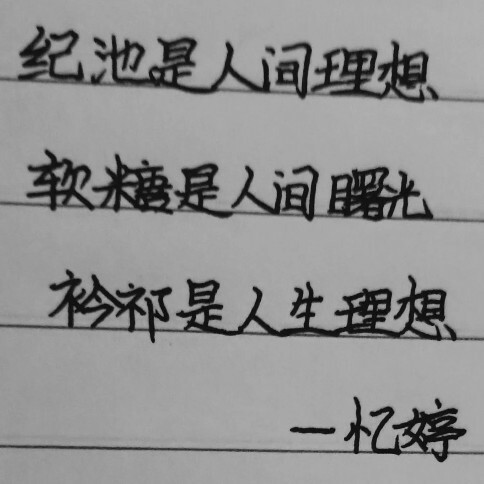 纪池是人间理想
软糖是人间曙光
衿祁是人生理想
—忆婷